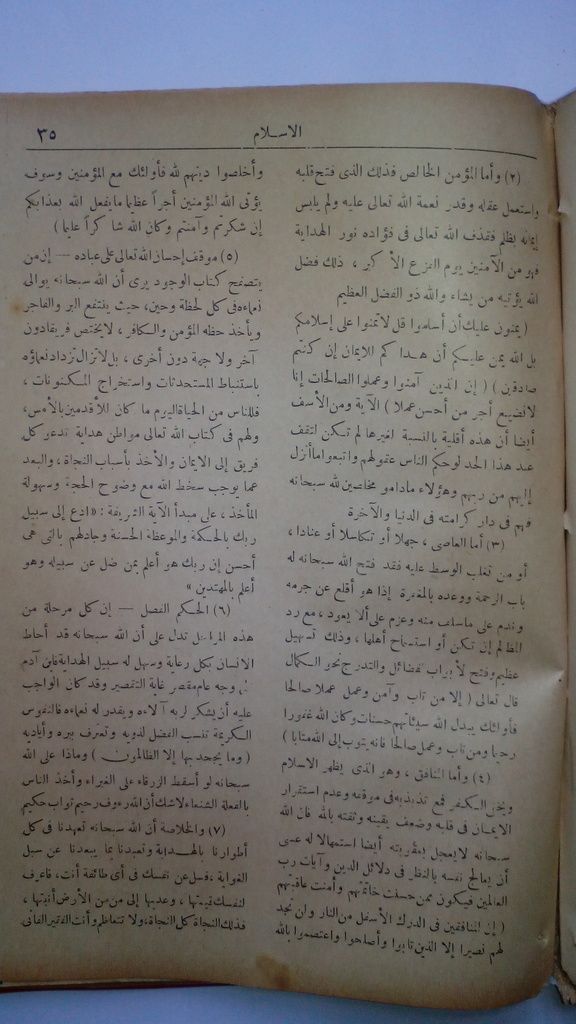 الاسلام
٣٥
(٢) وأما المؤمن الخالص فذلك الذى فتح قلبه
واستعمل عقله وقدر نعمة الله تعالى عليه ولم يلبس
إيمانه بظلم فقذف الله تعالى فى فؤاده نور الهداية
فهو من الآمنين يوم الفزع الأكبر ، ذلك فضل
الله يؤتيه من يشاء والله ذو الفضل العظيم
( يمنون عليك أن أسلموا قل لا تمنوا على إسلامكم
بل الله يمن عليكم أن هداكم للايمان إن كنتم
صادقين ) ( إن الذين آمنوا وعملوا الصالحات إنا
لا نضيع أجر من أحسن عملا ) الآية ومن الأسف
أيضا أن هذه أقلية بالنسبة لغيرها لم تكن لتقف
عند هذا الحد لو حكم الناس عقولهم واتبعوا ما أنزل
إليهم من ربهم وهؤلاء ماداموا مخلصين لله سبحانه
فهم فى دار كرامته فى الدنيا والآخرة
(٣) أما العاصى ، جهلا أو تكاسلا أو عنادا ،
أو من تغلب الوسط عليه فقد فتح الله سبحانه له
باب الرحمة ووعده بالمغفرة إذا هو أقلع عن جرمه
وندم على ماسلف منه وعزم على ألا يعود ، مع رد
المظالم إن تكن أو استسماح أهلها ، وذلك تسهيل
عظيم وفتح لأبواب الفضائل والتدرج نحو الكمال
قال تعالى ( إلا من تاب وآمن وعمل عملا صالحا
فأولئك يبدل الله سيئاتهم حسنات وكان الله غفورا
رحيما ومن تاب وعمل صالحا فانه يتوب إلى الله متابا )
(٤) وأما المنافق ، وهو الذى يظهر الاسلام
ويخفى الكفر فمع تذبذبه فى موقفه وعدم استقرار
الايمان فى قلبه وضعف يقينه وثقته بالله فان الله
سبحانه لا يعجل بعقوبته أيضا استمهالا له عسى
أن يعالج نفسه بالنظر فى دلائل الدين وآيات رب
العالمين فيكون ممن حسنت خاتمتهم وأمنت عاقبتهم
( إن المنافقين فى الدرك الأسفل من النار ولن تجد
لهم نصيرا إلا الذين تابوا وأصلحوا واعتصموا بالله
وأخلصوا دينهم لله فأولئك مع المؤمنين وسوف
يؤتى الله المؤمنين أجراً عظيما مايفعل الله بعذابكم
إن شكرتم وآمنتم وكان الله شاكراً عليما )
(٥) موقف إحسان الله تعالى على عباده — إن من
يتصفح كتاب الوجود يرى أن الله سبحانه يوالى
نعماءه فى كل لحظة وحين، حيث ينتفع البر والفاجر
ويأخذ حظه المؤمن والكافر ، لا يختص فريقا دون
آخر ولا جهة دون أخرى ، بل لا تزال تزداد نعماؤه
باستنباط المستحدثات واستخراج المكنونات ،
فللناس من الحياة اليوم ما كان للأقدمين بالأمس،
ولهم فى كتاب الله تعالى مواطن هداية تدعو كل
فريق إلى الايمان والأخذ بأسباب النجاة ، والبعد
عما يوجب سخط الله مع وضوح الحجة وسهولة
المأخذ ، على مبدأ الآية الشريفة : « ادع إلى سبيل
ربك بالحكمة والموعظة الحسنة وجادلهم بالتى هى
أحسن إن ربك هو أعلم بمن ضل عن سبيله وهو
أعلم بالمهتدين »
(٦) الحكم الفصل — إن كل مرحلة من
هذه المراحل تدل على أن الله سبحانه قد أحاط
الانسان بكل رعاية وسهل له سبيل الهداية فابن آدم
وجه عام مقصر غاية التقصير وقد كان الواجب
عليه أن يشكر لربه آلاءه ويقدر له نعماءه فالنفوس
الكريمة تنسب الفضل لذويه وتعرف بره وأياديه
( وما يجحد بها إلا الظالمون ) وماذا على الله
سبحانه لو أسقط الزرقاء على الغبراء وأخذ الناس
بالفعلة الشنعاء لاشك أن الله رءوف رحيم تواب حكيم
(٧) والخلاصة أن الله سبحانه تعهدنا فى كل
أطوارنا بالهداية وتعبدنا بما يبعدنا عن سبل
الغواية ، فسل عن نفسك فى أى طائفة أنت، فاعرف
لنفسك قيمتها ، وعد بها إلى من من الأرض أنبتها ،
فذلك النجاة كل النجاة، ولا تتعاظم وأنت الفقير الفانى